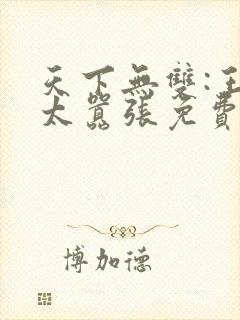 天下無雙:王
太囂張免費
博加德